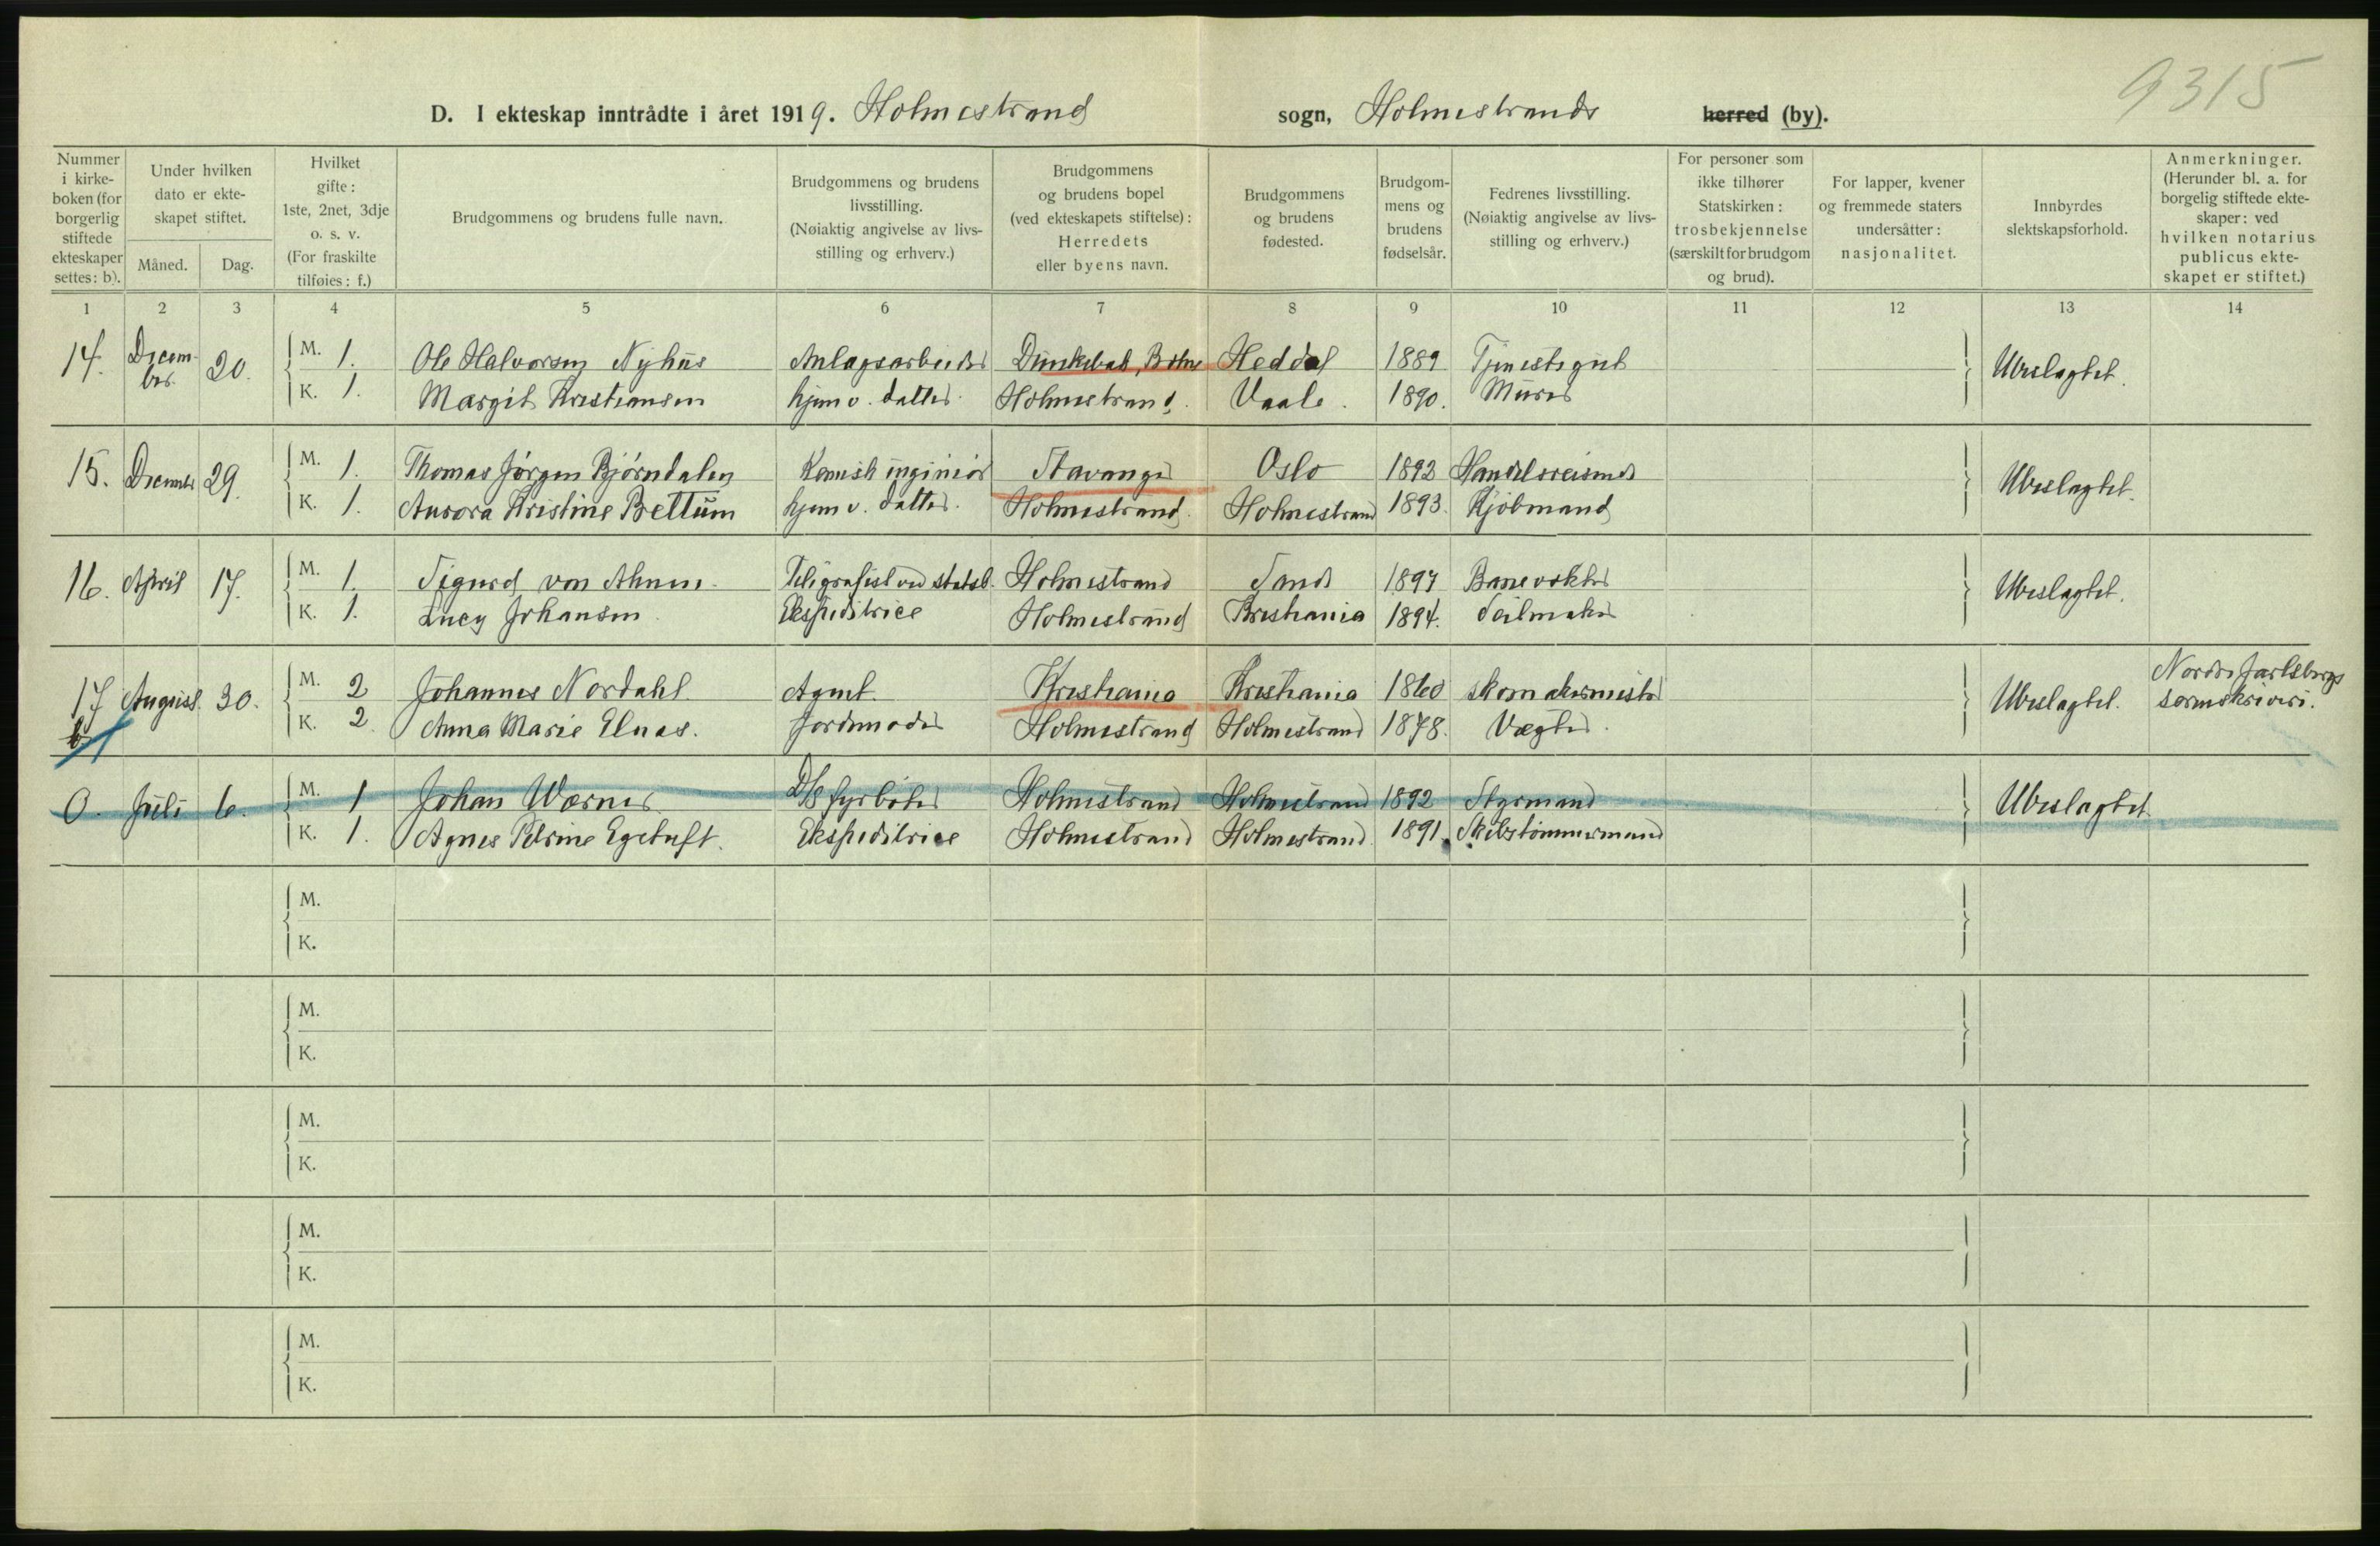 9315
D. I ekteskap inntrådte i året 1919. Holmestrand sogn, Holmestrands herred (by).
Nummer i kirkeboken (for borgerlig stiftede ekteskaper settes: b).
Under hvilken dato er ekteskapet stiftet.
Måned. Dag.
Hvilket gifte: 1ste, 2net, 3dje o. s. v. (For fraskilte tilføies: f.)
Brudgommens og brudens fulle navn.
Brudgommens og brudens livsstilling. (Nøiaktig angivelse av livsstilling og erhverv.)
Brudgommens og brudens bopel (ved ekteskapets stiftelse): Herredets eller byens navn.
Brudgommens og brudens fødested.
Brudgommens og brudens fødselsår.
Fedrenes livsstilling. (Nøiaktig angivelse av livsstilling og erhverv.)
For personer som ikke tilhører Statskirken: trosbekjennelse (særskilt for brudgom og brud).
For lapper, kvener og fremmede staters undersåtter: nasjonalitet.
Innbyrdes slektskapsforhold.
Anmerkninger. (Herunder bl. a. for borgelig stiftede ekteskaper: ved hvilken notarius publicus ekteskapet er stiftet.)
1 2 3 4 5 6 7 8 9 10 11 12 13 14
14. December 20. M. 1. Ole Halvorsen Nyhus Anlægsarbeider Botne Heddal 1889 Tjenestegut Ubeslægtet.
K. 1. Margit Kristiansen hjemv. datter Holmestrand. Vaale. 1890. Murer
15. December 29. M. 1. Thomas Jørgen Bjørndalen Kemisk ingeniør Stavanger Oslo 1892 Handelsreisende Ubeslægtet.
K. 1. Aurora Kristine Bettum hjemv. datter. Holmestrand. Holmestrand 1893. Kjøbmand
16. April 17. M. 1. Sigurd von Ahnen. Telegrafist ved statsb. Holmestrand Sande 1897 Banevokter Ubeslægtet.
K. 1. Lucy Johansen. Ekspeditrice Holmestrand Kristiania 1894. Seilmaker
17 b August 30. M. 2 Johannes Nordahl Agent Kristiania Kristiania 1860 skomakermester Ubeslægtet. Nordre Jarlsbergs sorenskriveri.
K. 2. Anna Marie Elnæs. Jordmoder Holmestrand Holmestrand 1878. Vægter.
0. Juli 6. M. 1 Johan Wærner D/S fyrbøter Holmestrand Holmestrand 1892 Styrmand Ubeslægtet
K. 1. Agnes Petrine Egetuft. Ekspeditrice Holmestrand Holmestrand. 1891. Skibstømmermand
M.
K.
M.
K.
M.
K.
M.
K.
M.
K.